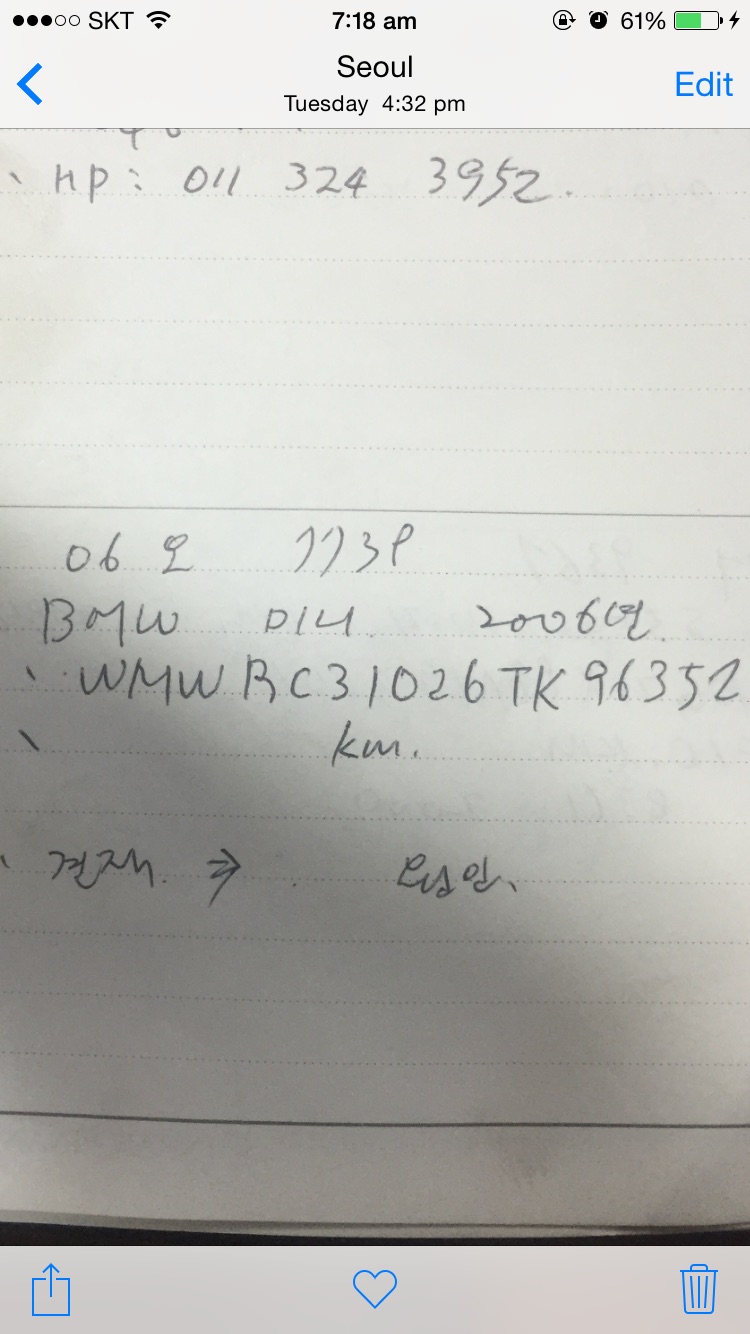 SKT 7:18 am 61%
Seoul
Tuesday 4:32 pm
Edit
HP: 011 324 3952.
06오 7738
BMW 미니 2006년
WMWRC31026TK96352
km.
견재 ⇒